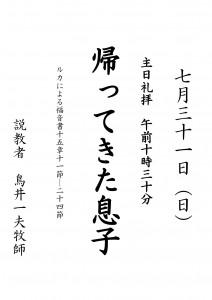 七月三十一日（日）
主日礼拝　午前十時三十分
帰ってきた息子
ルカによる福音書十五章十一節―二十四節
説教者　鳥井一夫牧師